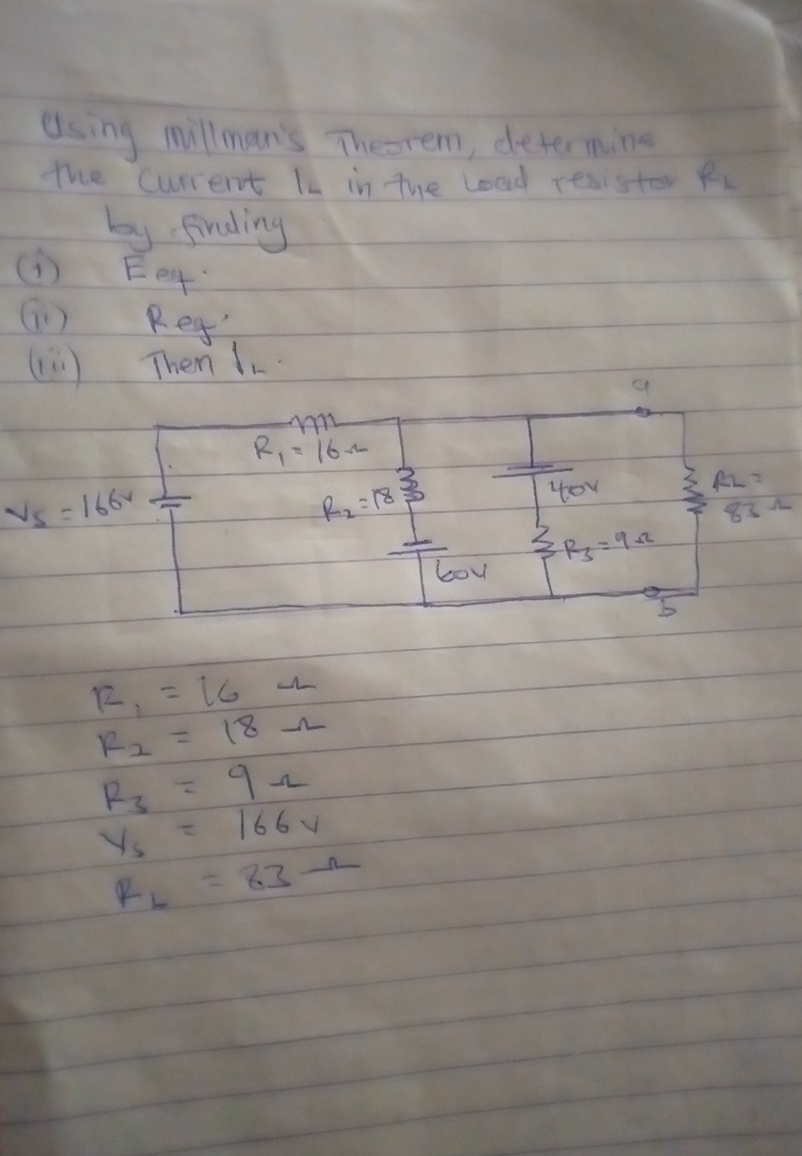 Using millman's Theorem, determine
the current IL in the Load resistor RL
by finding
(i) Eeq.
(ii) Req.
(iii) Then IL.
a
R1 = 16 Ω
Vs = 166v
R2 = 18
40v
RL =
83 Ω
R3 = 9 Ω
60v
b
R1 = 16 Ω
R2 = 18 Ω
R3 = 9 Ω
Vs = 166 v
RL = 83 Ω